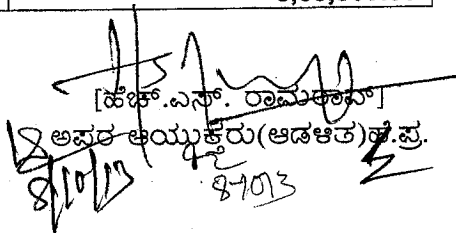 [ಹೆಚ್.ಎಸ್. ರಾಮರಾವ್]
ಅಪರ ಆಯುಕ್ತರು(ಆಡಳಿತ)ಹೆ.ಪ್ರ.
8/10/13